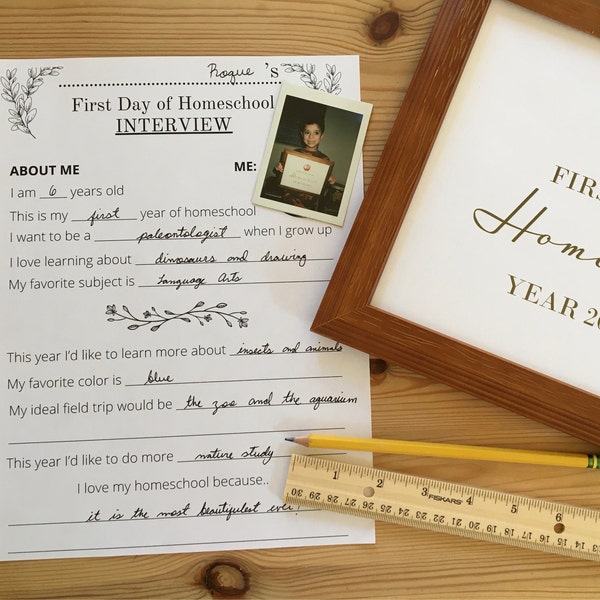 Roque 's
First Day of Homeschool
INTERVIEW
ABOUT ME
ME:
I am 6 years old
This is my first year of homeschool
I want to be a paleontologist when I grow up
I love learning about dinosaurs and drawing
My favorite subject is Language Arts
This year I'd like to learn more about insects and animals
My favorite color is blue
My ideal field trip would be the zoo and the aquarium
This year I'd like to do more nature study
I love my homeschool because..
it is the most beautifulest ever!
FIRS
Home
YEAR 20
1 2 3 4 5 6
FISKARS
30 29 28 27 26 25 24 23 22 21 20 19 18 17 16 15 14 13